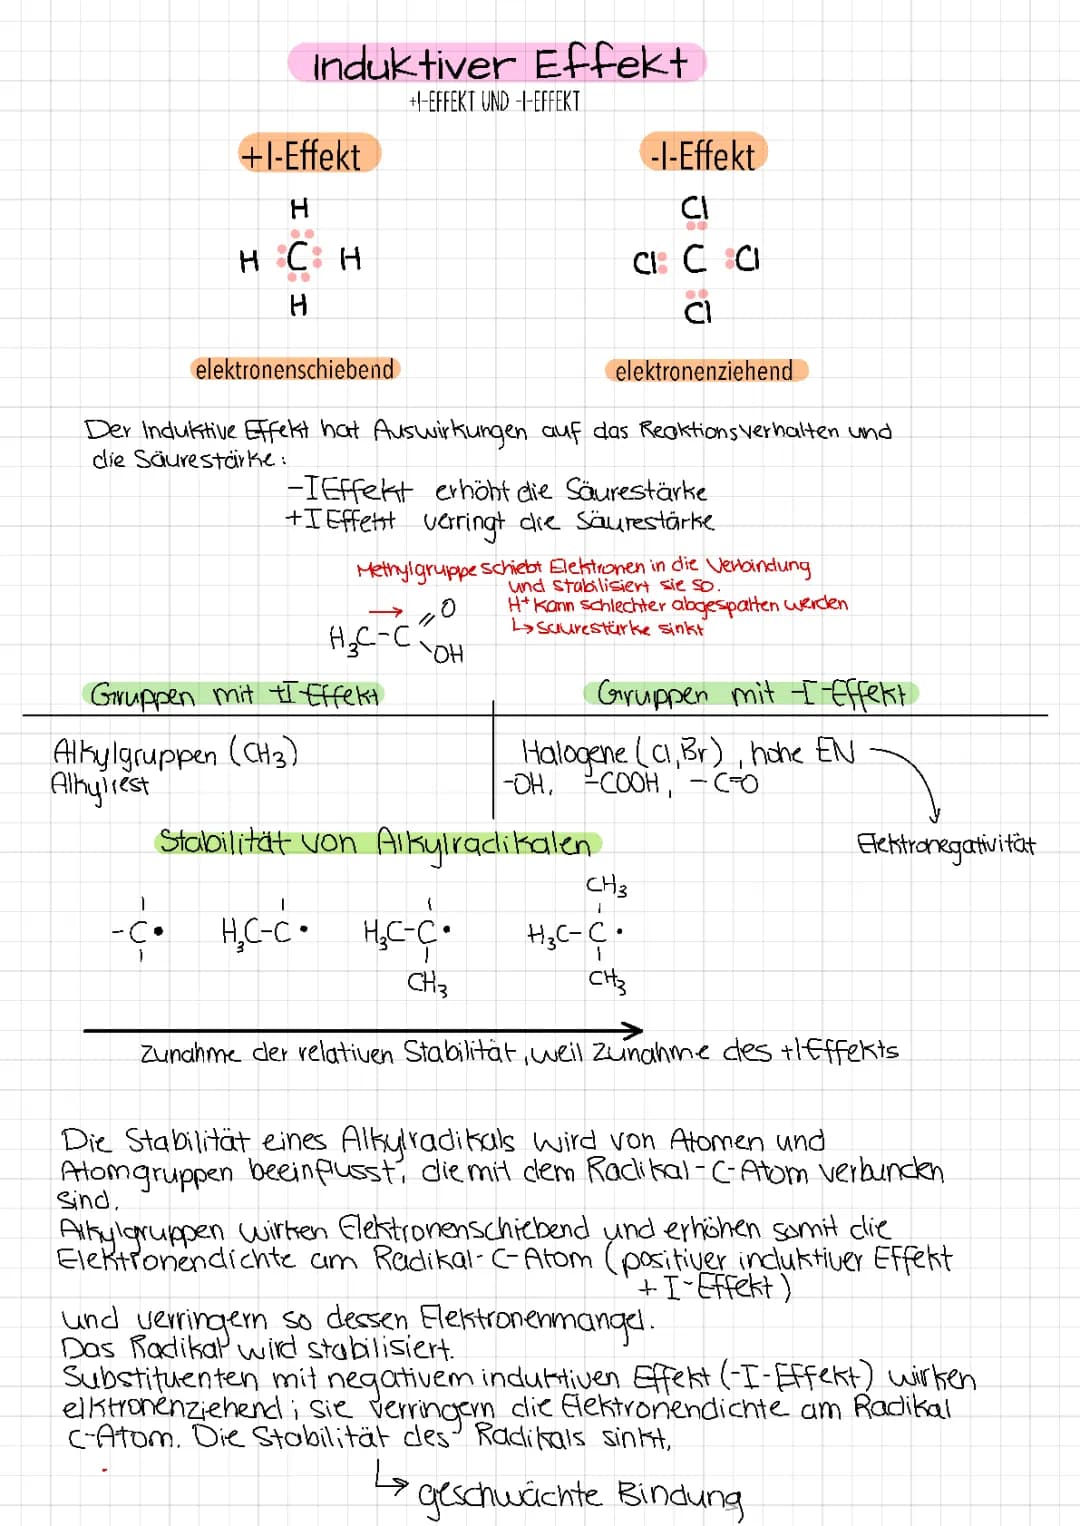 Induktiver Effekt
+I-EFFEKT UND -I-EFFEKT
+I-Effekt
-I-Effekt
H
H C H
H
Cl
Cl C Cl
Cl
elektronenschiebend
elektronenziehend
Der Induktive Effekt hat Auswirkungen auf das Reaktionsverhalten und
die Säurestärke:
-I Effekt erhöht die Säurestärke
+I Effekt verringt die Säurestärke
Methylgruppe schiebt Elektronen in die Verbindung
und stabilisiert sie so.
H+ kann schlechter abgespalten werden
↳ Säurestärke sinkt
→
H₃C-C
O
OH
Gruppen mit +I-Effekt
Gruppen mit -I-Effekt
Alkylgruppen (CH₃)
Alkylrest
Halogene (Cl, Br), hohe EN
-OH, -COOH, -C=O
Elektronegativität
Stabilität von Alkylradikalen
-C•
H₃C-C•
H₃C-C•
CH₃
CH₃
H₃C-C•
CH₃
Zunahme der relativen Stabilität, weil Zunahme des +I Effekts
Die Stabilität eines Alkylradikals wird von Atomen und
Atomgruppen beeinflusst, die mit dem Radikal-C-Atom verbunden
sind.
Alkylgruppen wirken Elektronenschiebend und erhöhen somit die
Elektronendichte am Radikal-C-Atom (positiver induktiver Effekt
+I-Effekt)
und verringern so dessen Elektronenmangel.
Das Radikal wird stabilisiert.
Substituenten mit negativem induktiven Effekt (-I-Effekt) wirken
elktronenziehend; sie verringern die Elektronendichte am Radikal
C-Atom. Die Stabilität des Radikals sinkt,
↳ geschwächte Bindung